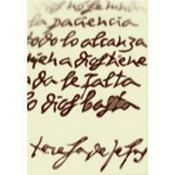 Dios no se muda
la paciencia
todo lo alcanza
quien a dios tiene
nada le falta
solo dios basta
teresa de jesus